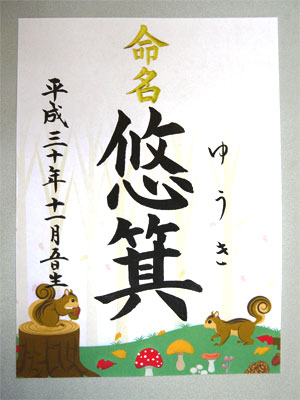 命名
悠箕
ゆうき
平成三十年十一月吾生